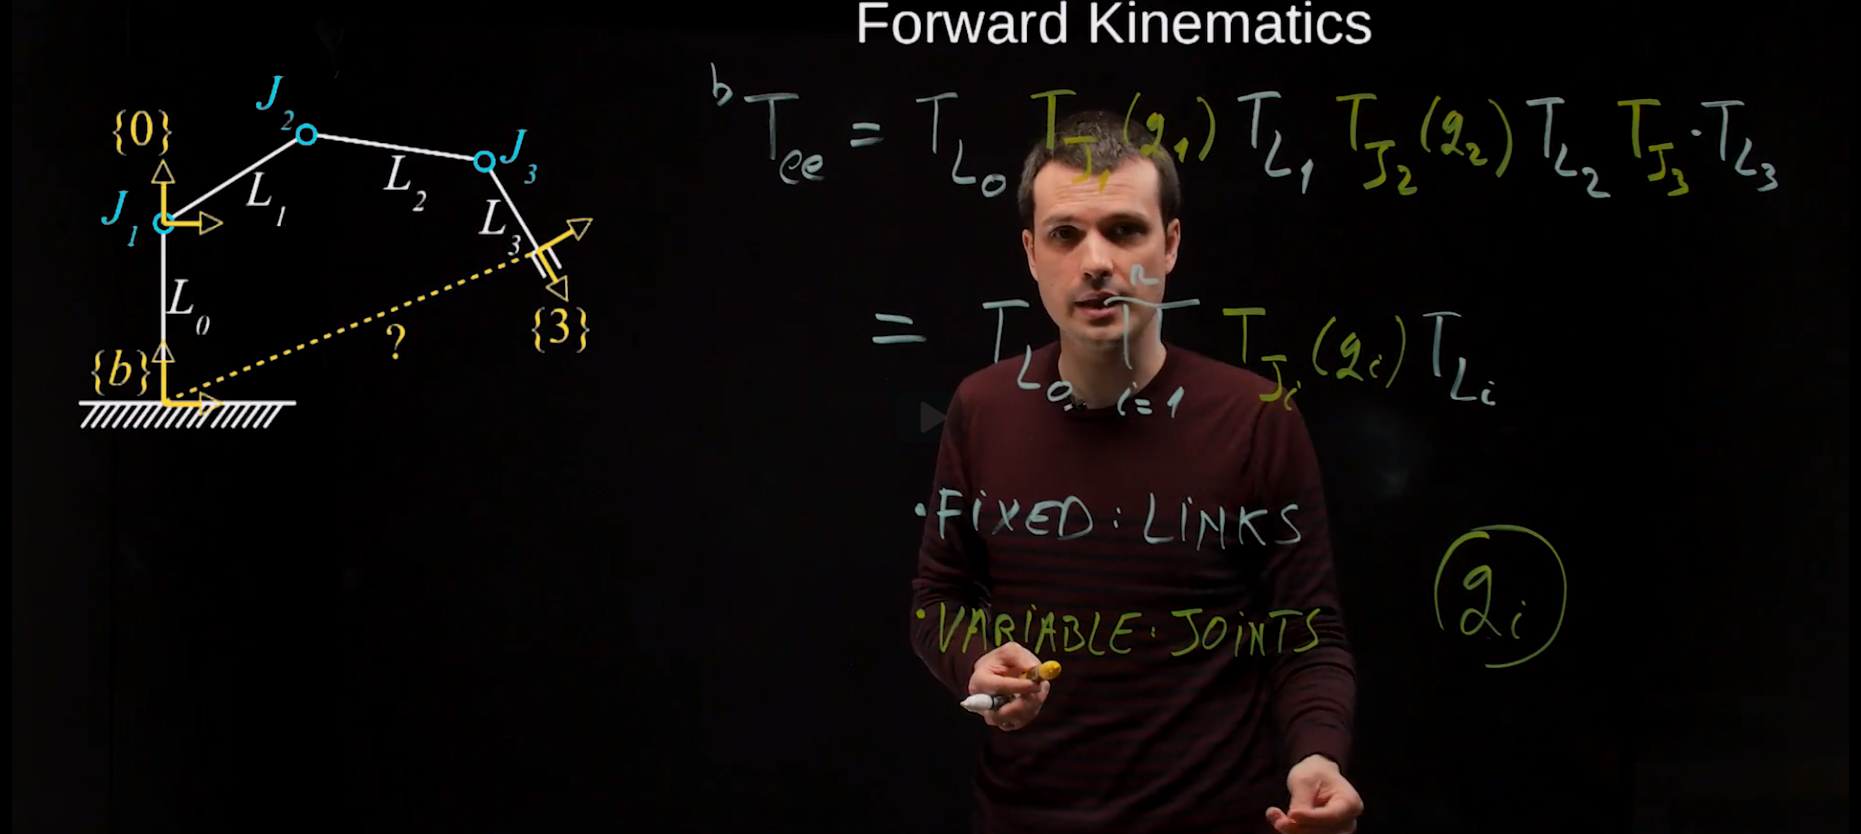 Forward Kinematics
{0}
J₂
J₃
J₁
L₁
L₂
L₃
L₀
{b}
?
{3}
ᵇT_ee = T_L₀ T_J₁(q₁) T_L₁ T_J₂(q₂) T_L₂ T_J₃ · T_L₃
= T_L₀ ∏ⁿᵢ₌₁ T_Jᵢ(qᵢ) T_Lᵢ
• FiXED: LiNKS
• VARiABLE: JOiNTS
qᵢ